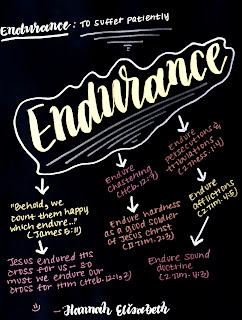 Endurance: To suffer patiently
Endurance
"Behold, we
count them happy
which endure..."
(James 5:11)
Jesus endured His
cross for us - so
must we endure our
cross for Him (Heb. 12:1,2)
Endure
Chastening
(Heb. 12:7)
Endure hardness
as a good soldier
of Jesus Christ
(II Tim. 2:3)
Endure
persecutions &
tribulations
(2 Thess. 1:4)
Endure
afflictions
(2 Tim. 4:5)
Endure sound
doctrine
(2 Tim. 4:3)
-Hannah Elisabeth